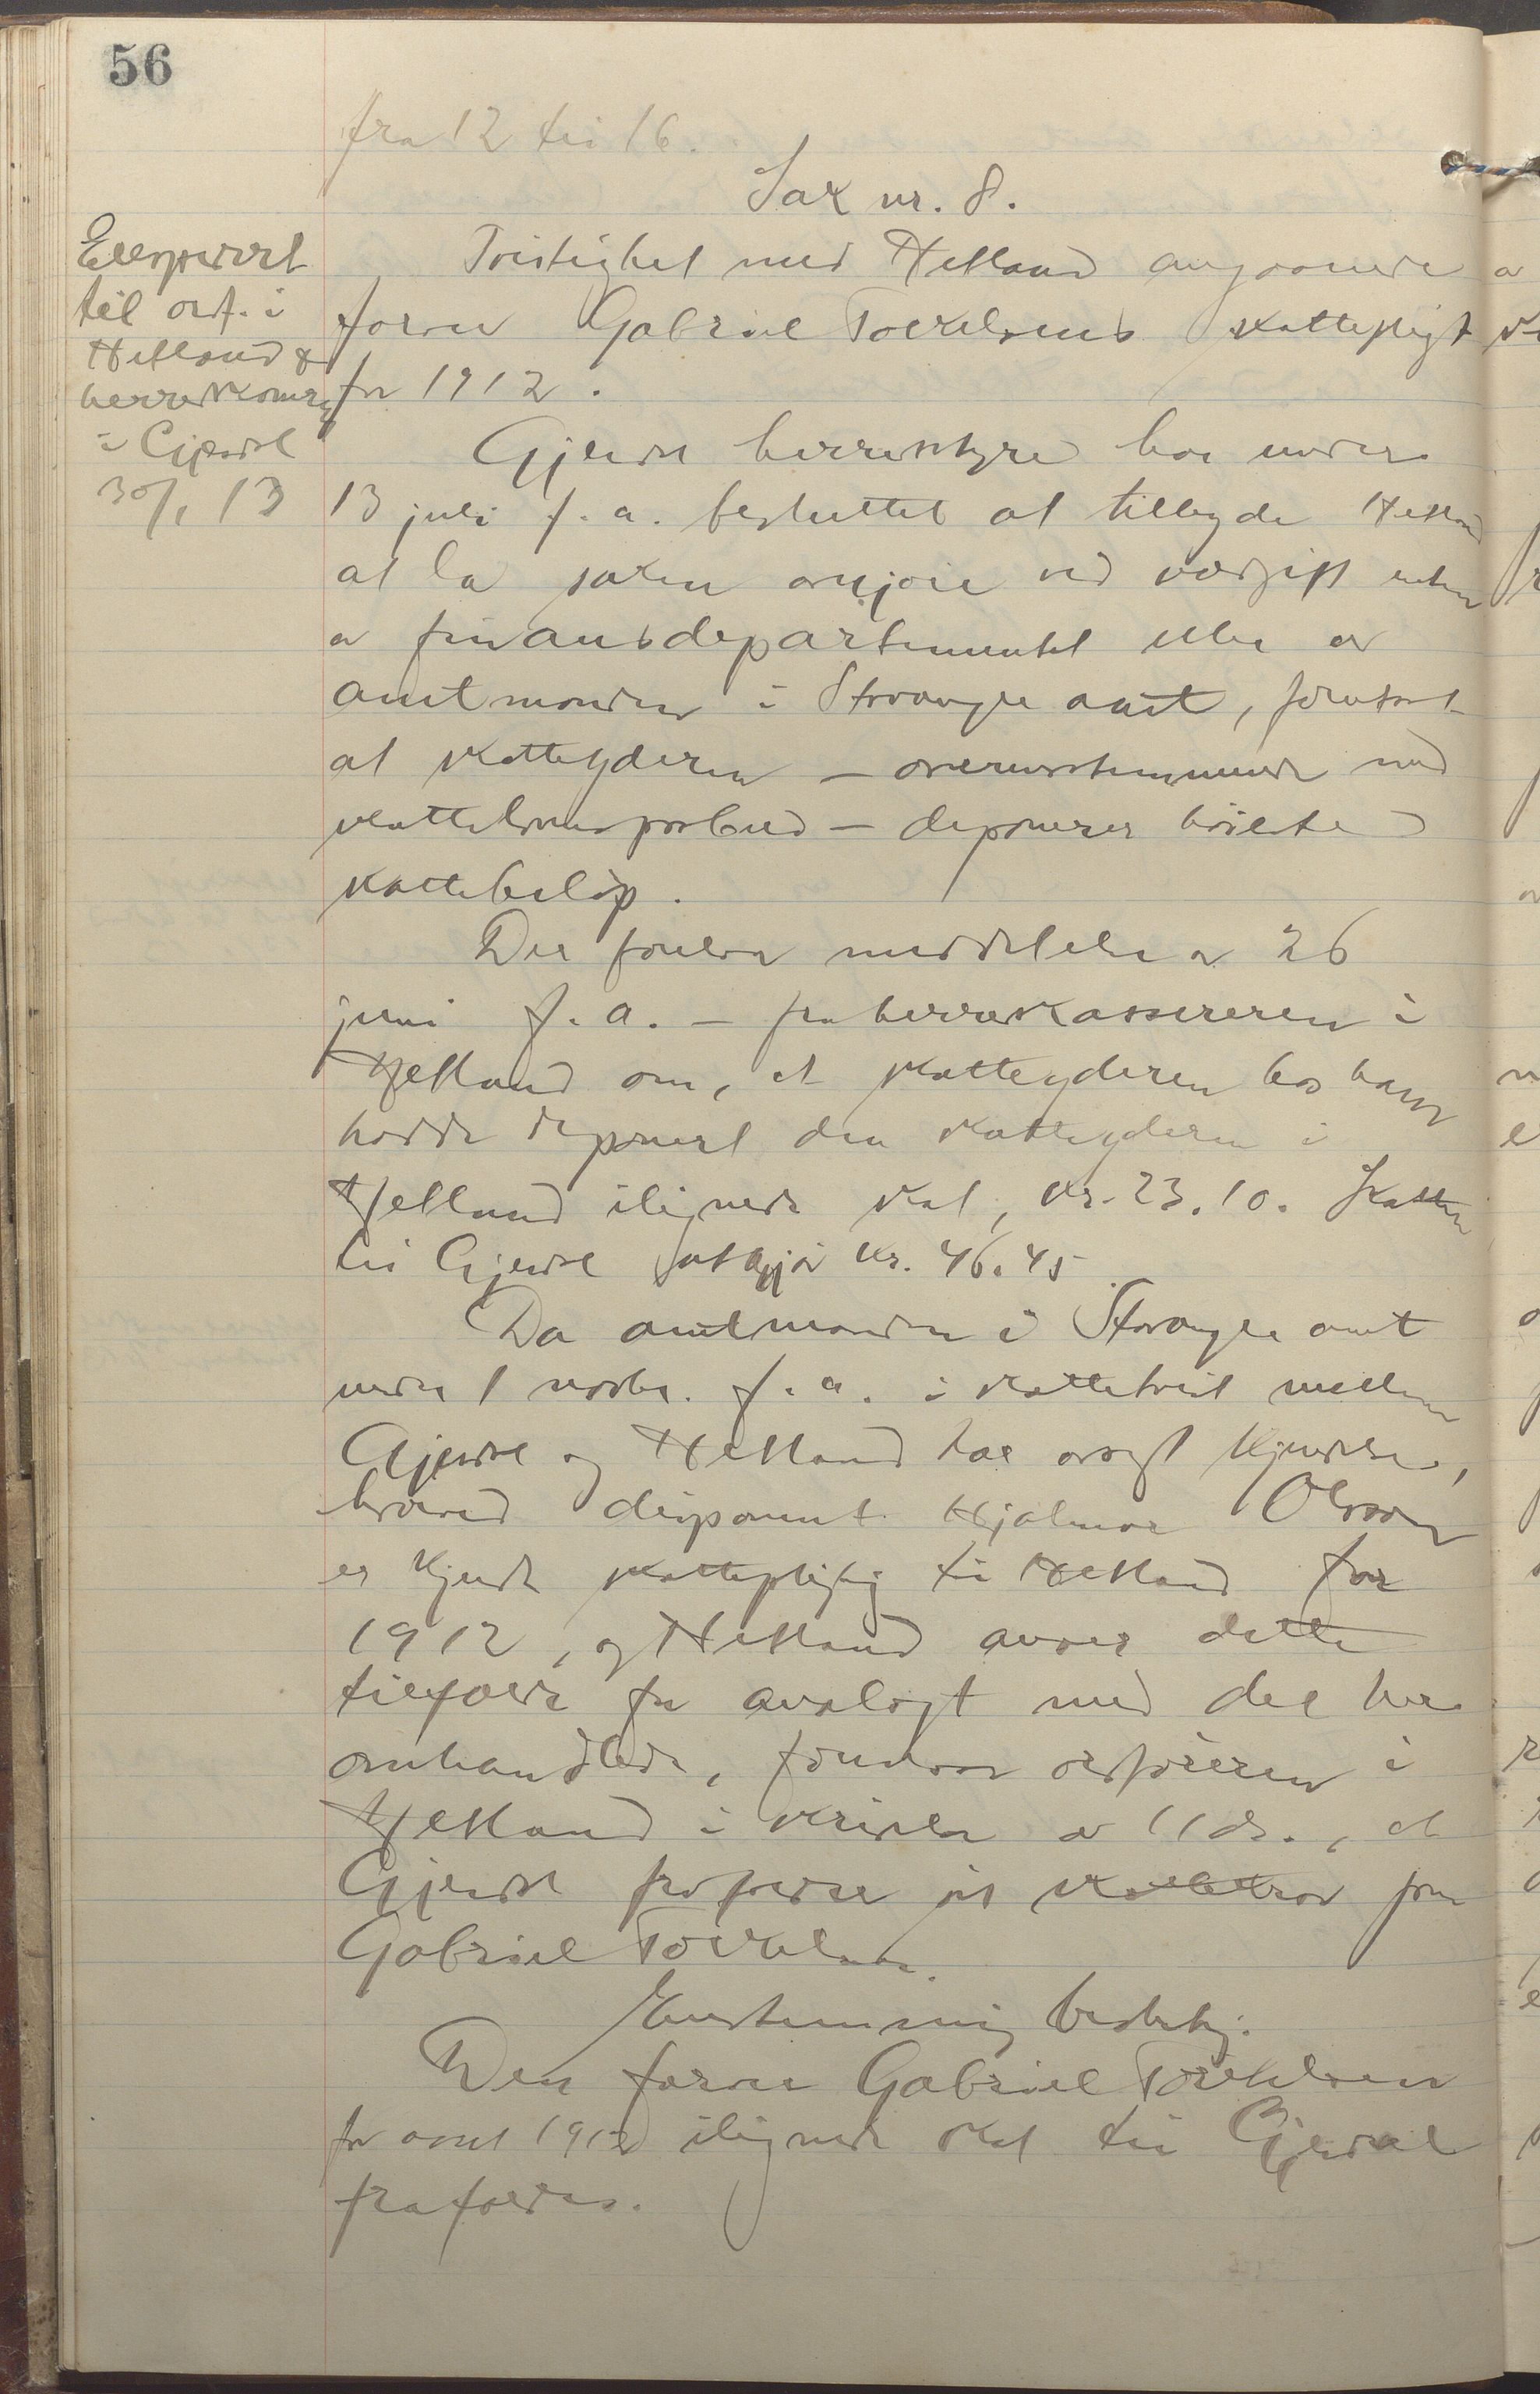 56
fra 12 til 16.
Sak nr. 8.
Tvistighet med Hetland angaaende
forvr Gabriel Torkelsens skattepligt
for 1912.
Ekspedert
til ordf. i
Hetland &
herredskasser
i Gjesdal
30/1 13
Gjesdal herredstyre har under
13 juli f. a. besluttet at tilbyde Hetland
at la saken avgjøre ved voldgift enten
av finansdepartementet eller av
amtmanden i Stavanger amt, forutsat
at skatteyderen — overensstemmende med
skattelovens paabud — deponerer høieste
skattebeløp.
Der foreligger meddelelse av 26
juni f. a. — fra herredskassereren i
Hetland om, at skatteyderen hos ham
hadde deponert den skatteyderen i
Hetland ilignede skat, kr. 23.10. Skatten
til Gjesdal utgjør kr. 46.45.
Da amtmanden i Stavanger amt
under 1 novbr. f. a. i skattetvist mellem
Gjesdal og Hetland har avsagt kjendelse,
hvorved disponent Hjalmar Olsson
er kjendt skattepligtig til Hetland for
1912, og Hetland anser dette
tilfælde for analogt med det her
omhandlede, formener ordføreren i
Hetland i skrivelse av 11 ds., at
Gjesdal frafalder sit skattekrav paa
Gabriel Torkelsen.
Enstemmig beslutning:
Den forvr Gabriel Torkelsen
for aaret 1912 ilignede skat til Gjesdal
frafaldes.